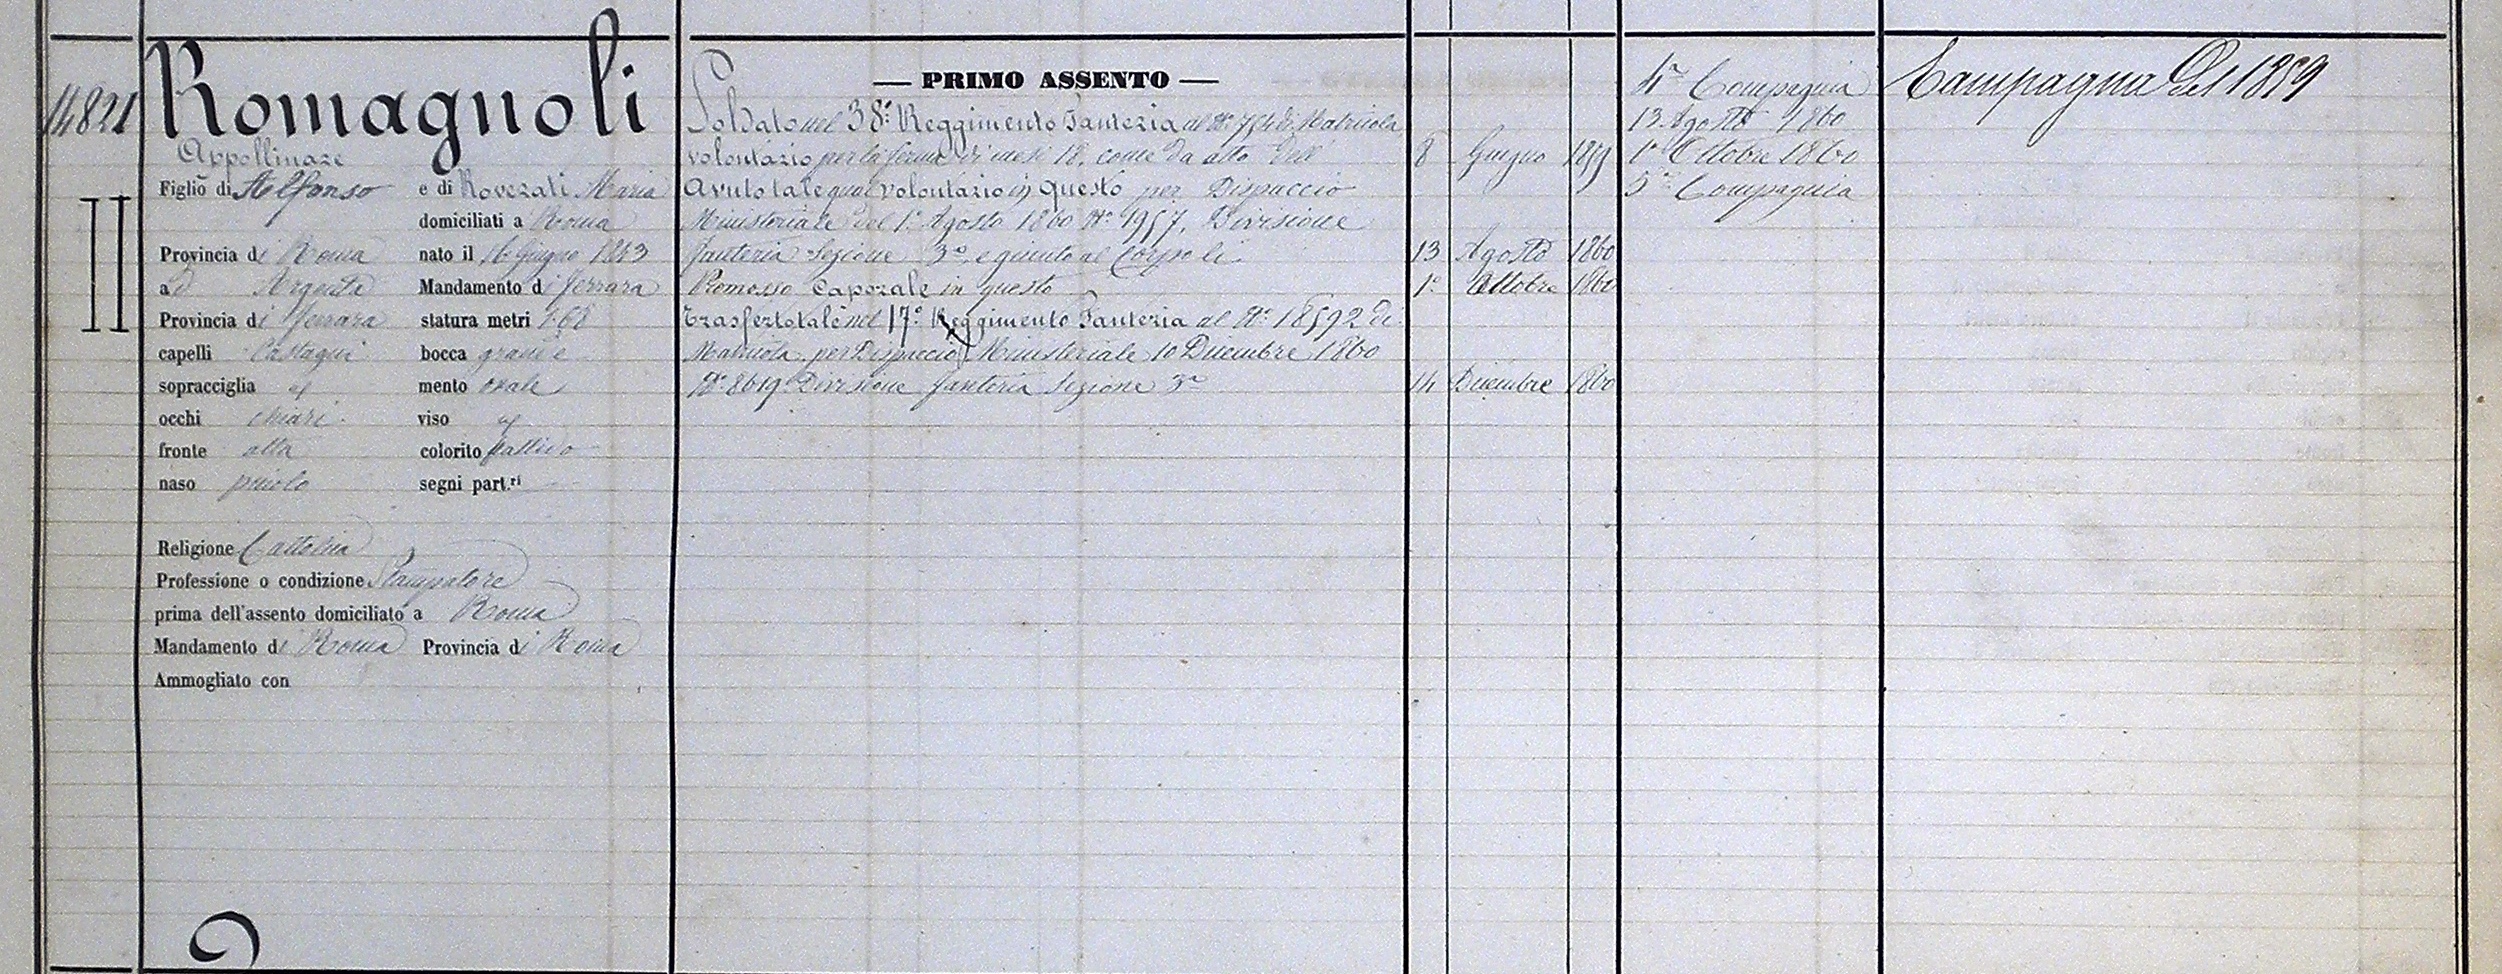 14821
Romagnoli
Appollinare
Figlio di Alfonso e di Roverati Maria
domiciliati a Roma
II
Provincia di Roma nato il 16 Giugno 1843
ad Argenta Mandamento di Ferrara
Provincia di Ferrara statura metri 1.68
capelli Castagni bocca grande
sopracciglia id mento ovale
occhi chiari viso id
fronte alta colorito pallido
naso piccolo segni part.ri
Religione Cattolica
Professione o condizione Stampatore
prima dell'assento domiciliato a Roma
Mandamento di Roma Provincia di Roma
Ammogliato con
— PRIMO ASSENTO —
Soldato nel 38.° Reggimento Fanteria al N.° 754 di Matricola
volontario per la ferma di mesi 18, come da atto dell' 8 Giugno 1859
Avuto tale qual volontario in questo per Dispaccio
Ministeriale del 1.° Agosto 1860 N.° 1957, Divisione
fanteria Sezione 3.a, e giunto al Corpo li 13 Agosto 1860
Promosso Caporale in questo 1.° Ottobre 1860
Trasferto tale nel 17.° Reggimento Fanteria al N.° 18592 di
Matricola per Dispaccio Ministeriale 10 Dicembre 1860
N.° 8619 Divisione fanteria Sezione 3.a 14 Dicembre 1860
4.a Compagnia
13 Agosto 1860
1.° Ottobre 1860
5.a Compagnia
Campagna del 1859